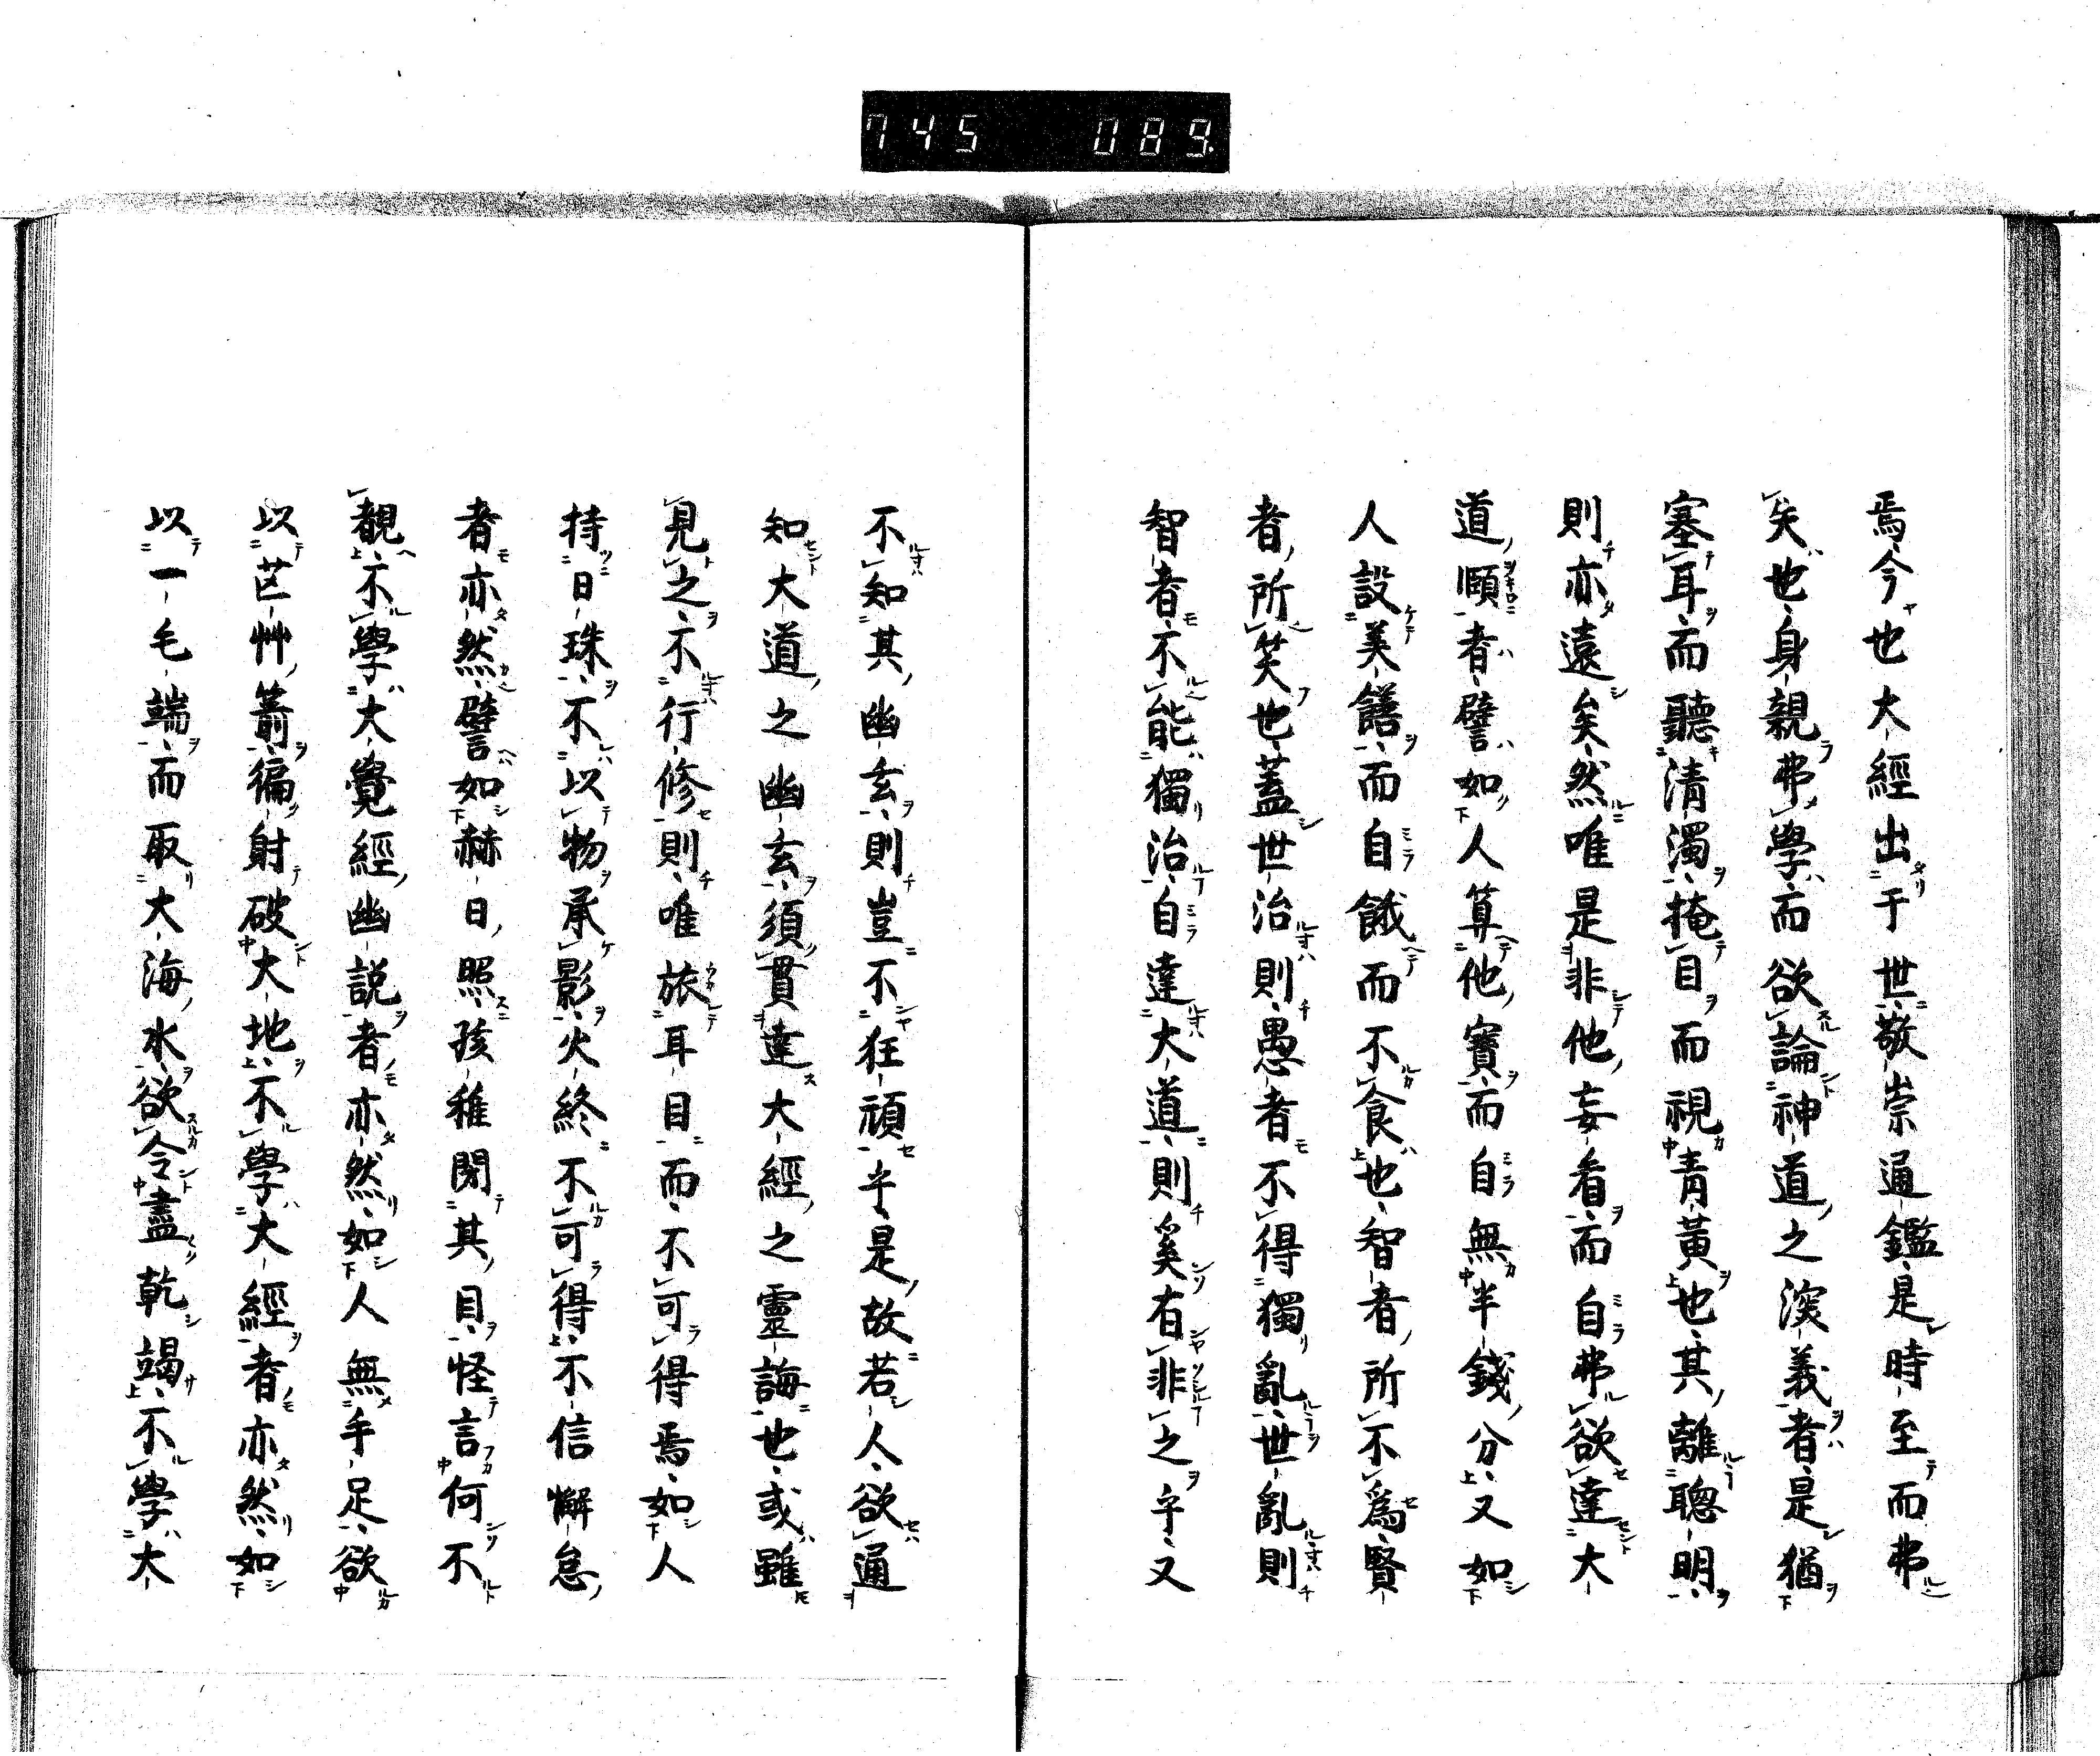 745 089
焉今也大經出于世敬崇通鑑是時至而弗
矣也身親弗學而欲論神道之深義者是猶
塞耳而聽清濁掩目而視青黃也其離聰明
則亦遠矣然唯是非他妄看而自弗欲達大
道頤者譬如人算他寶而自無半錢分又如
人設美饍而自餓而不食也智者所不爲賢
者所笑也蓋世治則愚者不得獨亂世亂則
智者不能獨治自達大道則奚有非之乎又
不知其幽玄則豈不狂頑乎是故若人欲通
知大道之幽玄須貫達大經之靈誨也或雖
見之不行修則唯旅耳目而不可得焉如人
持日珠不以物承影火終不可得不信懈怠
者亦然譬如赫日照孩稚閉其目怪言何不
覩不學大覺經幽説者亦然如人無手足欲
以芒艸箭徧射破大地不學大經者亦然如
以一毛端而取大海水欲令盡乾竭不學大